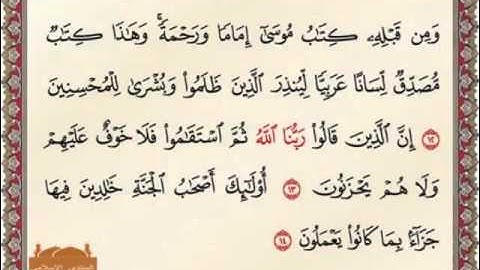 وَمِن قَبْلِهِۦ كِتَٰبُ مُوسَىٰٓ إِمَامًا وَرَحْمَةً ۚ وَهَٰذَا كِتَٰبٌ
مُّصَدِّقٌ لِّسَانًا عَرَبِيًّا لِّيُنذِرَ ٱلَّذِينَ ظَلَمُوا۟ وَبُشْرَىٰ لِلْمُحْسِنِينَ
١٢ إِنَّ ٱلَّذِينَ قَالُوا۟ رَبُّنَا ٱللَّهُ ثُمَّ ٱسْتَقَٰمُوا۟ فَلَا خَوْفٌ عَلَيْهِمْ
وَلَا هُمْ يَحْزَنُونَ ١٣ أُو۟لَٰٓئِكَ أَصْحَٰبُ ٱلْجَنَّةِ خَٰلِدِينَ فِيهَا
جَزَآءًۢ بِمَا كَانُوا۟ يَعْمَلُونَ ١٤